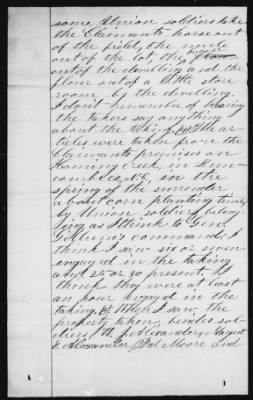 some Union soldiers take
the Claimants horse out
of the field, the mule
out of the lot, the bacon
out of the dwelling and the
flour out of a little store
room by the dwelling.
I don't remember of hearing
the takers say anything
about the taking. The ar-
ticles were taken from the
Claimants premises on
Haming Creek, in Bun-
combe Co, N.C, in the
spring of the surrender
about corn planting time,
by Union soldiers, belong-
ing as I think to Genl
Gillums command. I
think I saw six or seven
engaged in the taking
and 25 or 30 present. I
think they were at least
an hour engaged in the
taking. When I saw the
property taken, besides sol-
diers, Alexander, August
Alexander, Moore and